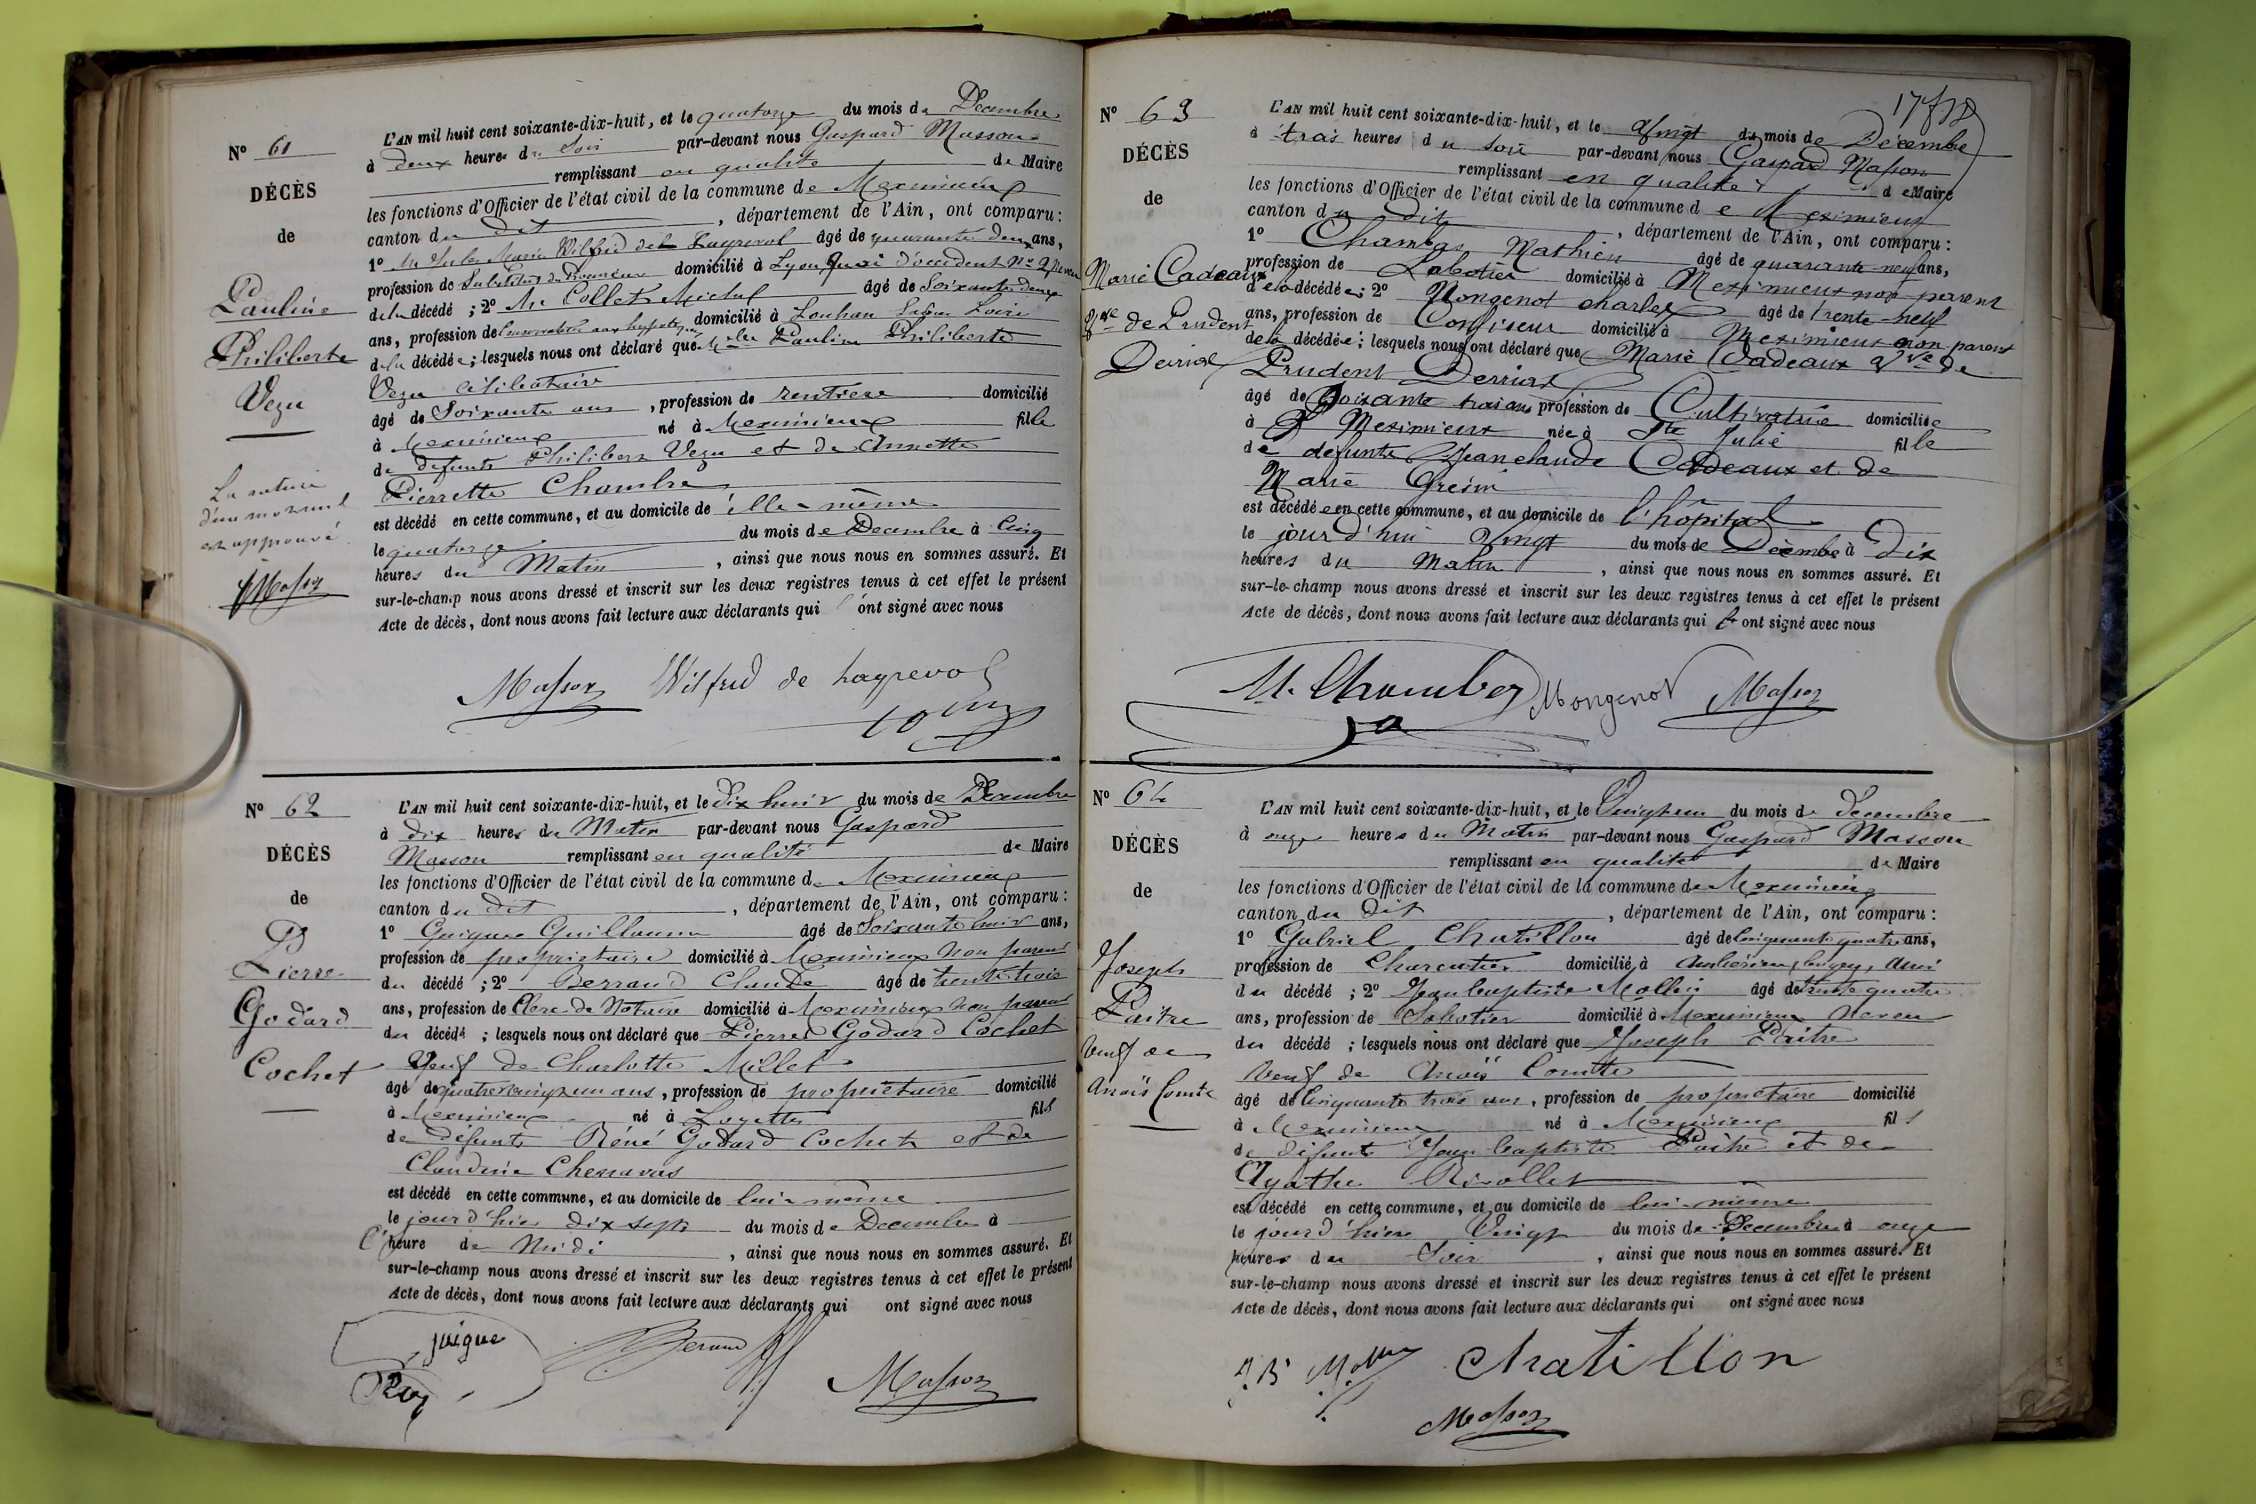 N° 61
DÉCÈS
de
Pauline
Philiberte
Vezu
La rature
d'un mot nul
est approuvé
Masson
L'AN mil huit cent soixante-dix-huit, et le quatorze du mois de Décembre
à deux heures du Soir par-devant nous Gaspard Masson
remplissant en qualité de Maire
les fonctions d'Officier de l'état civil de la commune de Meximieux
canton du dit, département de l'Ain, ont comparu :
1° Mr Jules Marie Wilfrid de Layrevol âgé de quarante deux ans,
profession de Substitut du Procureur domicilié à Lyon Quai d'occident N° 9 neveu
de la décédé ; 2° Mr Collet Michel âgé de Soixante deux
ans, profession de Conservateur aux hypothèques domicilié à Louhan Saône Loire
de la décédée ; lesquels nous ont déclaré que Melle Pauline Philiberte
Vezu célibataire
âgé de Soixante ans, profession de rentière domicilié
à Meximieux né à Meximieux fille
de défunts Philibert Vezu et de Annette
Pierrette Chambre
est décédé en cette commune, et au domicile de elle-même
le quatorze du mois de Décembre à Cinq
heures du Matin, ainsi que nous nous en sommes assuré. Et
sur-le-champ nous avons dressé et inscrit sur les deux registres tenus à cet effet le présent
Acte de décès, dont nous avons fait lecture aux déclarants qui ont signé avec nous
Masson Wilfrid de Layrevol
N° 62
DÉCÈS
de
Pierre
Godard
Cochet
L'AN mil huit cent soixante-dix-huit, et le Dix huit du mois de Décembre
à dix heures du Matin par-devant nous Gaspard
Masson remplissant en qualité de Maire
les fonctions d'Officier de l'état civil de la commune de Meximieux
canton du dit, département de l'Ain, ont comparu :
1° Guigue Guillaume âgé de Soixante huit ans,
profession de propriétaire domicilié à Meximieux non parent
du décédé ; 2° Berraud Claude âgé de trente trois
ans, profession de Clerc de Notaire domicilié à Meximieux non parent
du décédé ; lesquels nous ont déclaré que Pierre Godard Cochet
Veuf de Charlotte Millet
âgé de quatre vingt un ans, profession de propriétaire domicilié
à Meximieux né à Loyettes fils
de défunts Réné Godard Cochet et de
Claudine Chenavas
est décédé en cette commune, et au domicile de lui-même
le jour d'hier dix sept du mois de Décembre à
l'heure de Midi, ainsi que nous nous en sommes assuré. Et
sur-le-champ nous avons dressé et inscrit sur les deux registres tenus à cet effet le présent
Acte de décès, dont nous avons fait lecture aux déclarants qui ont signé avec nous
guigue Beraud Masson
N° 63
DÉCÈS
de
Marie Cadeaux
Vve de Prudent
Derriat
L'AN mil huit cent soixante-dix-huit, et le Vingt du mois de Décembre
à trois heures du soir par-devant nous Gaspard Masson
remplissant en qualité de Maire
les fonctions d'Officier de l'état civil de la commune de Meximieux
canton du dit, département de l'Ain, ont comparu :
1° Chambas Mathieu âgé de quarante-neuf ans,
profession de Sabotier domicilié à Meximieux non parent
de la décédée ; 2° Mongenot charles âgé de trente-neuf
ans, profession de Confiseur domicilié à Meximieux non parent
de la décédée ; lesquels nous ont déclaré que Marie Cadeaux Vve de
Prudent Derriat
âgé de Soixante trois ans profession de Cultivatrice domiciliée
à Meximieux née à Ste Julie fille
de défunts Jeanclaude Cadeaux et de
Marie Grésin
est décédée en cette commune, et au domicile de l'hôpital
le jourd'hui Vingt du mois de Décembre à Dix
heures du Matin, ainsi que nous nous en sommes assuré. Et
sur-le-champ nous avons dressé et inscrit sur les deux registres tenus à cet effet le présent
Acte de décès, dont nous avons fait lecture aux déclarants qui ont signé avec nous
Mongenot Masson
N° 64
DÉCÈS
de
Joseph
Paitre
veuf de
Anaïs Comte
L'AN mil huit cent soixante-dix-huit, et le Vingt un du mois de Décembre
à onze heures du Matin par-devant nous Gaspard Masson
remplissant en qualité de Maire
les fonctions d'Officier de l'état civil de la commune de Meximieux
canton du dit, département de l'Ain, ont comparu :
1° Gabriel Chatillon âgé de Cinquante quatre ans,
profession de Charcutier domicilié à Ambérieu, bugey, Ami
du décédé ; 2° Jean baptiste Mollein âgé de trente quatre
ans, profession de Sabotier domicilié à Meximieux neveu
du décédé ; lesquels nous ont déclaré que Joseph Paitre
veuf de Anaïs Comtte
âgé de Cinquante trois ans, profession de propriétaire domicilié
à Meximieux né à Meximieux fils
de défunts Jean baptiste Paitre et de
Agathe Rivollet
est décédé en cette commune, et au domicile de lui-même
le jour d'hier Vingt du mois de Décembre à onze
heures du Soir, ainsi que nous nous en sommes assuré. Et
sur-le-champ nous avons dressé et inscrit sur les deux registres tenus à cet effet le présent
Acte de décès, dont nous avons fait lecture aux déclarants qui ont signé avec nous
chatillon
Masson